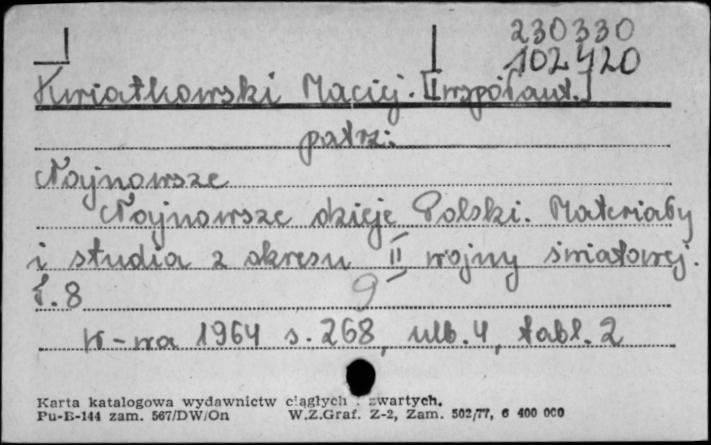 230330
102420
Kwiatkowski Maciej. [współaut.]
patrz:
Najnowsze
Najnowsze dzieje Polski. Materiały
i studia z okresu II wojny światowej.
t. 8 9
W-wa 1964 s. 268, nlb. 4, tabl. 2
Karta katalogowa wydawnictw ciągłych i zwartych.
Pu-B-144 zam. 567/DW/On W.Z.Graf. Z-2, Zam. 502/77, 6 400 000